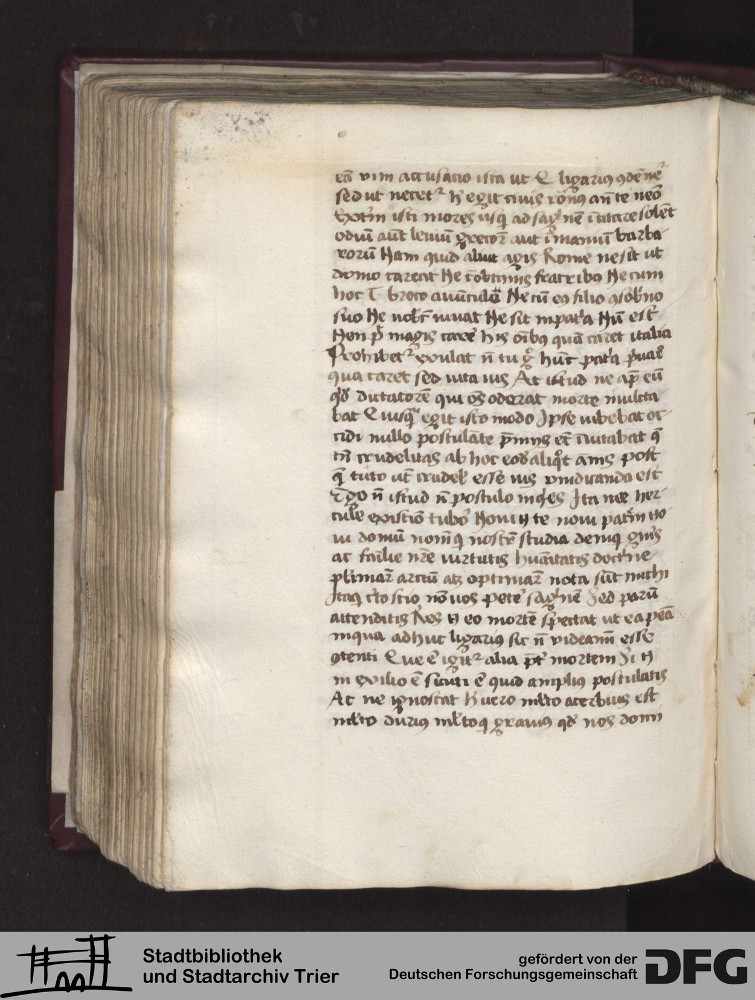 eā vim accusacio ista ut Q ligarius ꝯdēnet
sed ut necetr h egit civis rōnus an̄ te nēo
Ext̄ni isti mores usq ad sag̓nē īcitare solēt
odiū aut leviū grecor aut īmaniū barba
rorū Nam quid aliut agis Rome ne sit ut
domo careat Ne cū optimis fratribus Ne cum
hoc T broco avūculo Ne cū eo filio ꝯsobrino
suo Ne nobc̄ vivat Ne sit in patria Nū est
Non pt magis care his oībus quā caret italia
Prohibetr exulat n̄ tu g̊ hūc patria privare
qua caret sed vita vis At istud ne apd eū
qd dictatorē qui oēs oderat morte multa
bat Quisq egit isto modo Ipse iubebat oc
cidi nullo postulāte p̄miis et īvitabat q
tn̄ crudelitas ab hoc eodē aliqt annis post
quē tu nc̄ crudelē esse vis vindicanda est
Ego n̄ istud n̄ postulo inqes Ita me her
cule existīo tubero Novi n te novi patrē no
vi domū nomēq nostrū studia deniq gn̄is
ac familie nr̄e virtutis hūanitatis doct̄ne
pl̄imar̄ artiū atq optimar̄ nota sūt michi
Itaq c̄to scio nō vos petē sag̓nē Sed parū
attenditis Res n eo mortē spectat ut ea pena
in qua adhuc ligarius sit n̄ videamī esse
ꝯtenti Que ē igitr alia pt̄ mortem Si n
in exilio ē sicuti ē quid amplius postulatis
At ne ignoscat h vero mlto acerbius est
mlto durius mltoq gravius qd nos domi
Stadtbibliothek
und Stadtarchiv Trier
gefördert von der
Deutschen Forschungsgemeinschaft
DFG